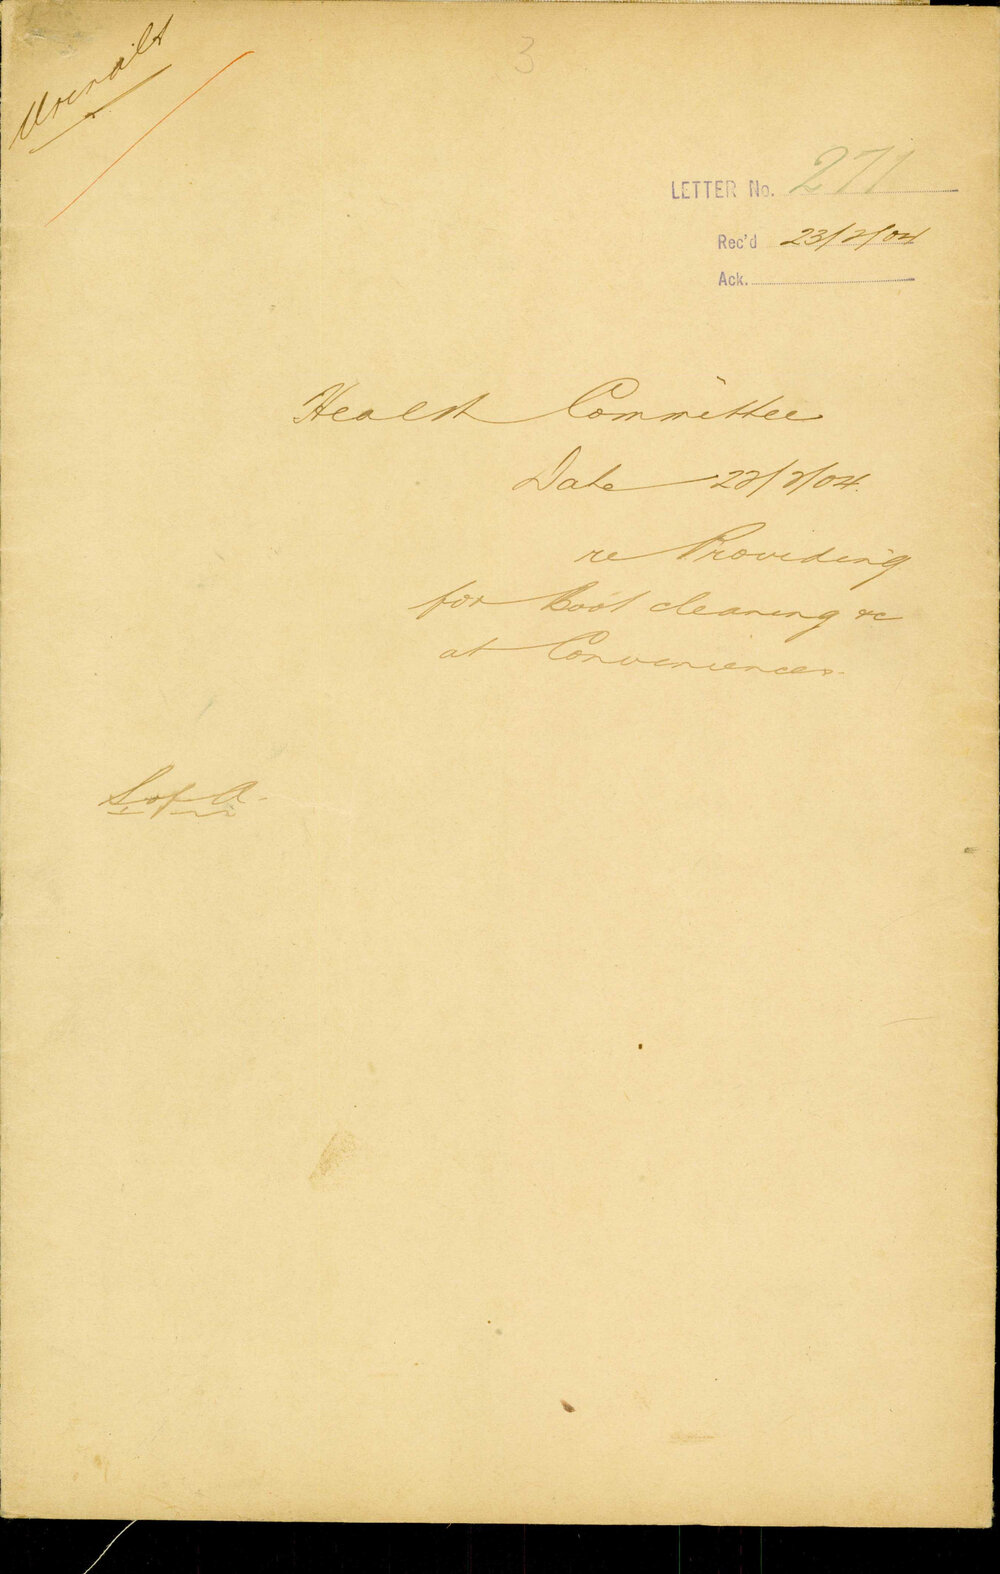 Urinals
3
LETTER No. 271
Rec'd 23/2/04
Ack.
Health Committee
Date 22/2/04.
re Providing
for Boot cleaning &c
at Conveniences.
S of A.